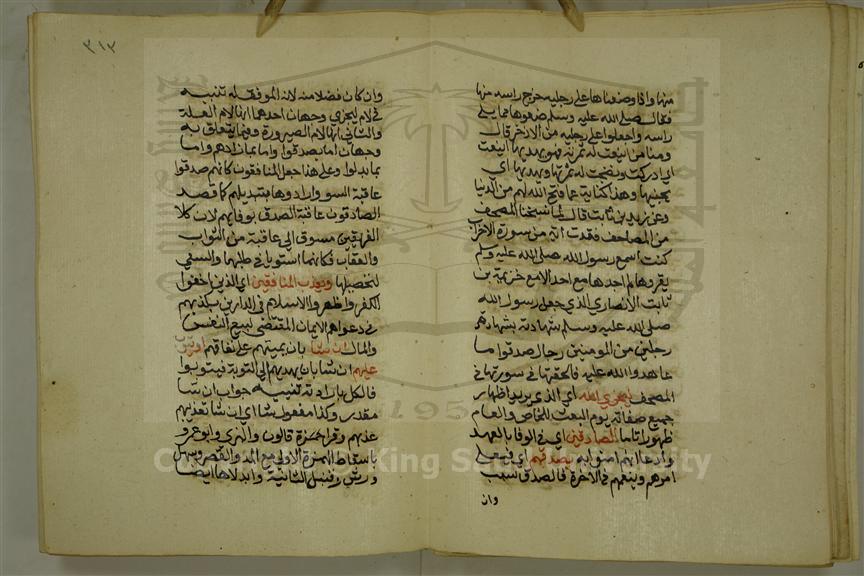 منها واذا وضعناها على رجليه خرج راسه منها
فقال صلى الله عليه وسلم ضعوها مما يلي
راسه واجعلوا على رجليه من الاذخر قال
ومنا من اينعت له ثمرته فهو يهدبها اينعت
اي ادركت ونضجت له ثمرتها ويهدبها اي
يجنيها وهذا كناية عما فتح الله لهم من الدنيا
وعن زيد بن ثابت قال لما نسخنا المصحف
من المصاحف فقدت اية من سورة الاحزاب
كنت اسمع رسول الله صلى الله عليه وسلم
يقروها لم اجدها مع احد الا مع خزيمة بن
ثابت الانصاري الذي جعل رسول الله
صلى الله عليه وسلم شهادته بشهادة
رجلين من المومنين رجال صدقوا ما
عاهدوا الله عليه فالحقتها في سورتها في
المصحف ليجزي الله اي الذي يريد اظهار
جميع صفاته يوم البعث للخاص والعام
ظهورا تاما الصادقين اي في الوفا بالعهد
وادعا انهم امنوا به بصدقهم اي فيعلي
امرهم وينعمهم في الاخرة فالصدق سبب
وان
٣١٣
وان كان فضلا منه لانه الموفق له تنبيه
في لام ليجزي وجهان احدهما انها لام العلة
والثاني انها لام الصيرورة وفيما يتعلق به
وجهان اما بصدقوا واما بما زادهم واما
بما بدلوا وعلى هذا جعل المنافقون كانهم قصدوا
عاقبة السو وارادوها بتبديلهم كما قصد
الصادقون عاقبة الصدق بوفايهم لان كلا
الفريقين مسوق الى عاقبة من الثواب
والعقاب فكانهما استويا في طلبها والسعي
لتحصيلها ويعذب المنافقين اي الذين اخفوا
الكفر واظهروا الاسلام في الدارين بكذبهم
في دعواهم الايمان المقتضي لبيع النفس
والمال ان شا بان يميتهم على نفاقهم او يتوب
عليهم ان شا بان يهديهم الى التوبة فيتوبوا
فالكل بارادته تنبيه جواب ان شا
مقدر وكذا مفعول شا اي ان شا تعذيبهم
عذبهم وقرا حمزة قالون والبزي وابو عمرو
باسقاط الهمزة الاولى مع المد والقصر وسهل
ورش وقنبل الثانية وابدلاها ايضا
1957
Copyright © King Saud University